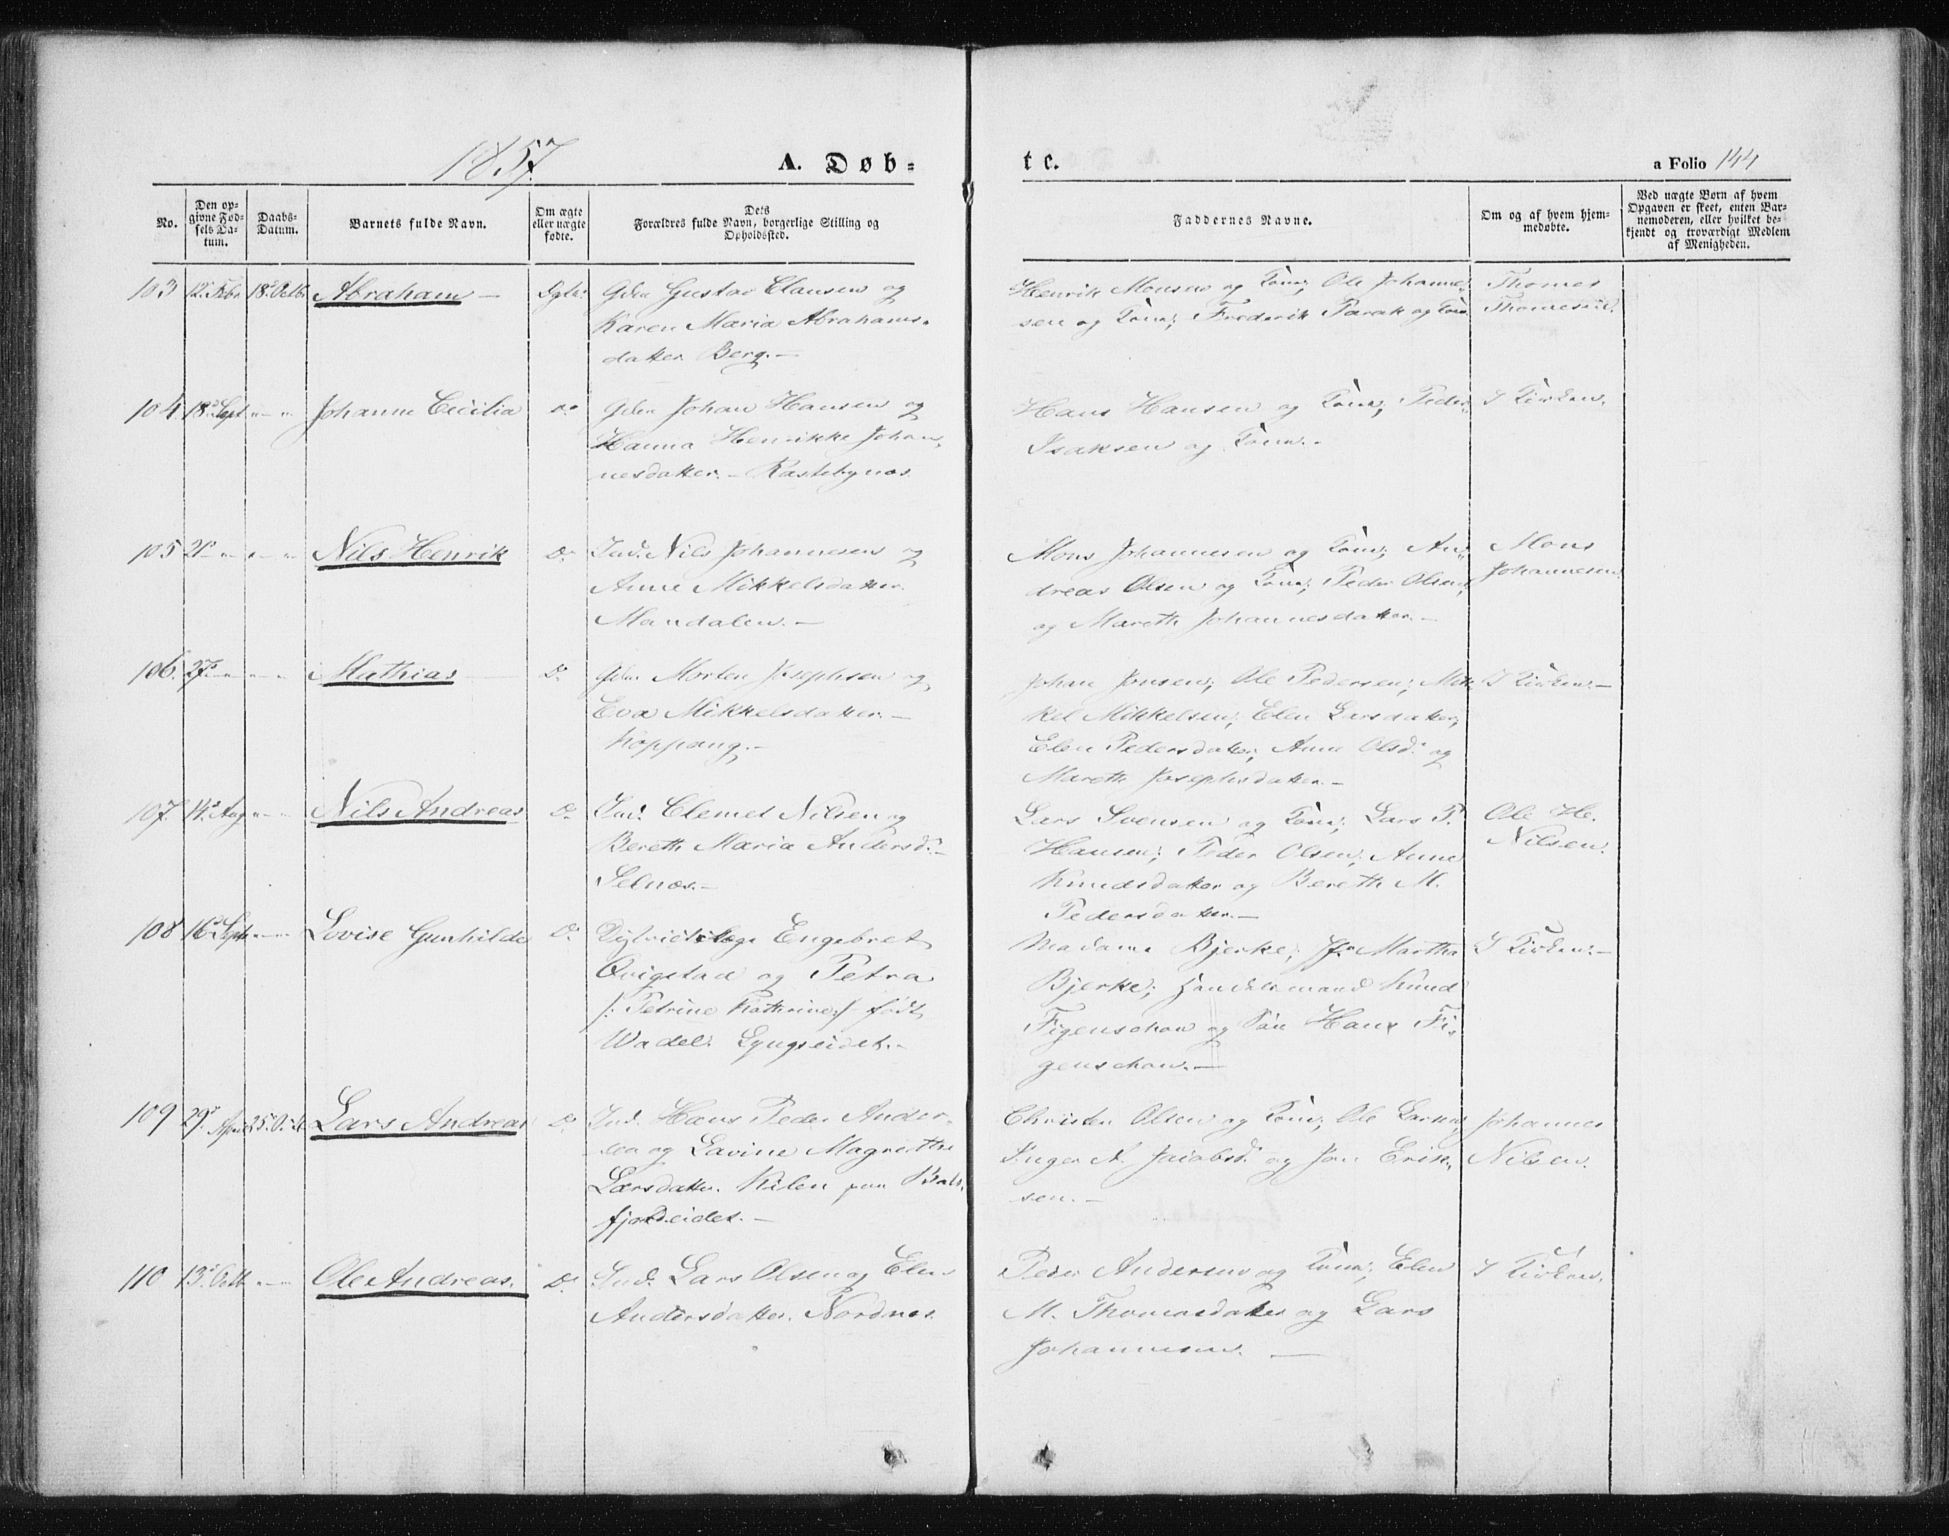 1857.
A. Døb=
te.
a Folio 144
No.
Den op-
givne Fød-
sels Da-
tum.
Daabs-
Datum.
Barnets fulde Navn.
Om ægte
eller uægte
fødte.
Dets
Forældres fulde Navn, borgerlige Stilling og
Opholdssted.
Faddernes Navne.
Om og af hvem hjem-
medøbte.
Ved uægte Børn af hvem
Opgaven er skeet, enten Bar-
nemoderen, eller hvilket be-
kjendt og troværdigt Medlem
af Menigheden.
103 12. Febr 18. Octb. Abraham — Ægte. Gdm Gustav Clausen og
Karen Maria Abrahams-
datter Berg. —
Henrik Monsen og Kone; Ole Johanne-
sen og Kone; Frederik Parak og Kone
Thomes
Thomesen.
104. 18. Sept " " Johanne Cecilia Do Gdm Johan Hansen og
Hanna Henrikke Johan-
nesdatter. — Rastebynes
Hans Hansen og Kone; Peder
Isaksen og Kone. -
I Kirken.
105 21 " " " Nils Henrik Do Ind. Nils Johannesen og
Anne Mikkelsdatter.
Mandalen. —
Mons Johannesen og Kone; An-
dreas Olsen og Kone; Peder Olsen,
og Mareth Johannesdatter. —
Mons
Johannesen
106. 27 " " " Mathias Do. Gdm Morten Josephsen og
Eva Mikkelsdatter. —
Koppang. —
Johan Jonsen; Ole Pedersen; Mik-
kel Mikkelsen; Elen Larsdatter;
Elen Pedersdatter; Anne Olsd. og
Mareth Josephsdatter. —
I Kirken. —
107. 14. Aug " " Nils Andreas Do Ind. Clemet Nilsen og
Bereth Maria Andersd. —
Selnæs. —
Lars Svensen og Kone; Lars P.
Hansen; Peder Olsen; Anne
Knudsdatter og Bereth M.
Pedersdatter. —
Ole H.
Nilsen.
108 16. Sept " " Lovise Gunhilde Do. Districtslæge Engebret
Qvigstad og Petra
/: Petrine Kathrine:/ født
Wadel. Lyngseidet. —
Madame Bjerke; Jfr Martha
Bjerke; Handelsmand Knud
Figenschou og Søn Hans Fi-
genschou. —
I Kirken. —
109 29. April 25. Octb Lars Andreas Do. Ind. Hans Peder Ander-
sen og Lavine Magrethe
Larsdatter. Kilen paa Bals-
fjordeidet. —
Christen Olsen og Kone; Ole Larsen;
Inger A. Jacobsd. og Jon Erik-
sen. —
Johannes
Nilsen.
110 13. Octb " " Ole Andreas. Do. Ind. Lars Olsen og Elen
Andersdatter. Nordnes.
Peder Andersen og Kone; Elen
M. Thomasdatter og Lars
Johannesen. —
I Kirken.